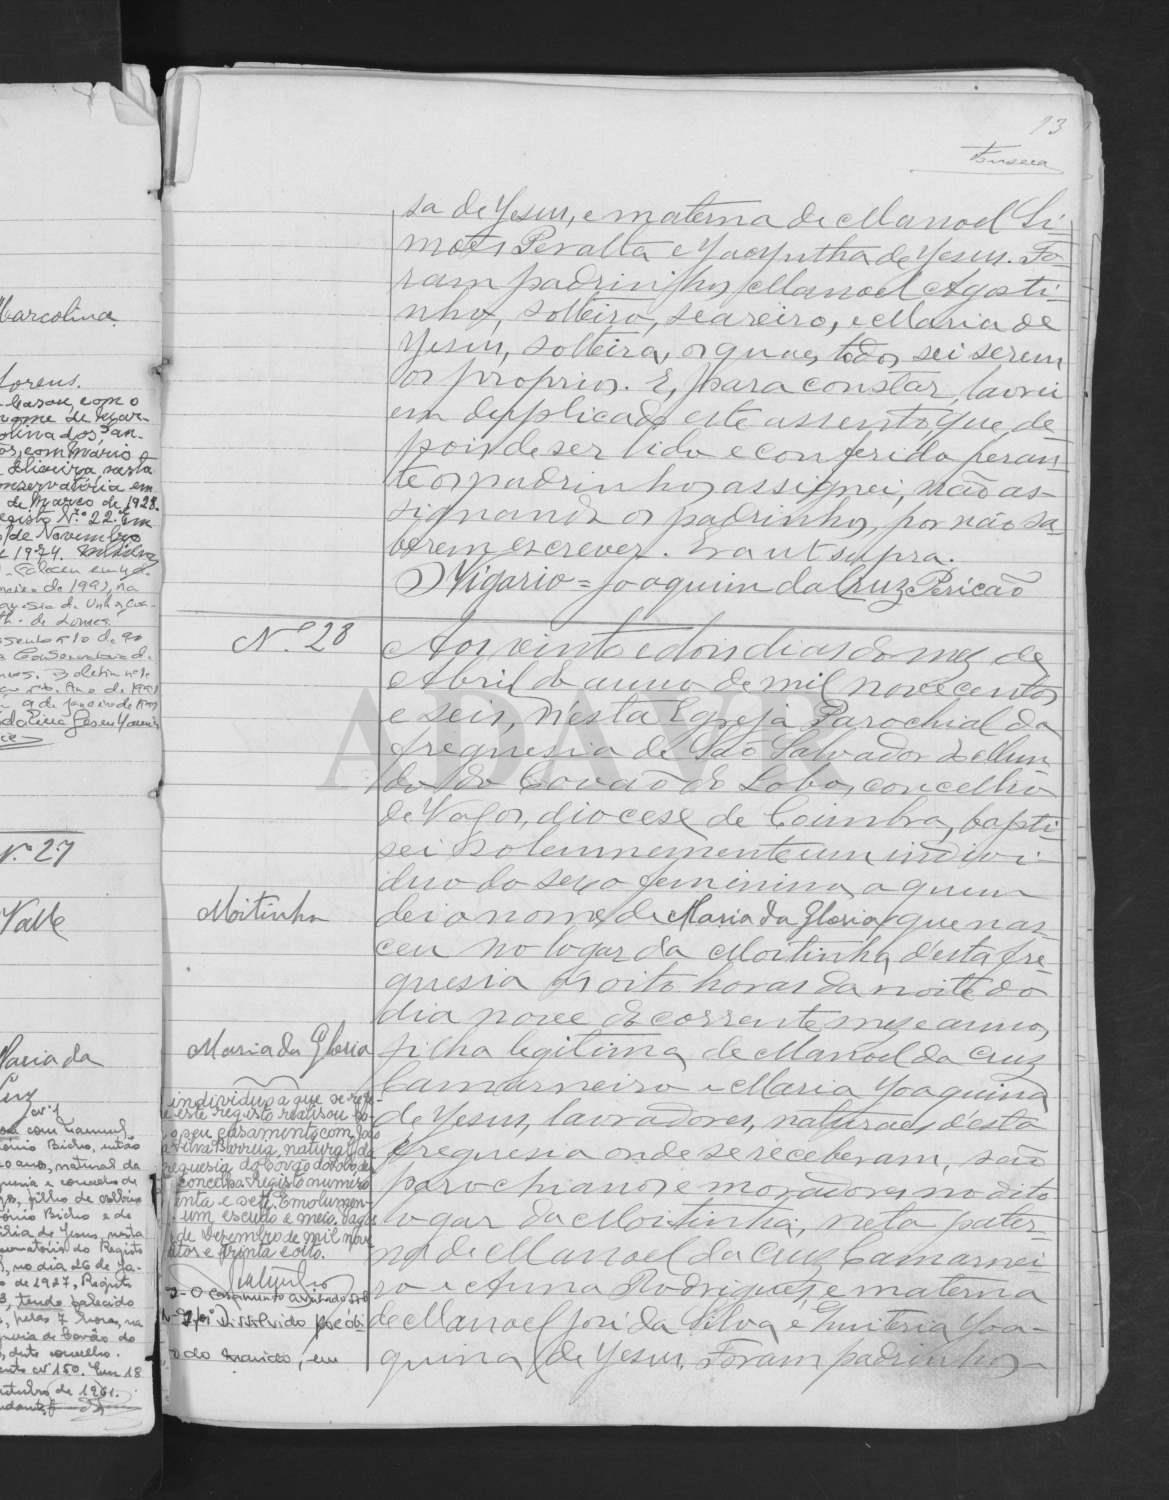 13
Fonseca
sa de Jesus, e materna de Manoel Si-
mões Peralta e Jacyntha de Jesus. Fo-
ram padrinhos Manoel Agosti-
nho, solteiro, seareiro, e Maria de
Jesus, solteira, os quaes todos sei serem
os proprios. E, para constar, lavrei
em duplicado este assento, que, de-
pois de ser lido e conferido peran-
te os padrinhos, assignei, não as-
signando os padrinhos, por não sa-
berem escrever. Era ut supra.
O Vigario = Joaquim da Cruz Pericão
N.º 28
Moitinha
Maria da Gloria
Aos vinte e dois dias do mez de
Abril do anno de mil nove centos
e seis, n'esta Egreja Parochial da
freguesia de São Salvador do Mun-
do do Covão do Lobo, concelho
de Vagos, diocese de Coimbra, bapti-
sei solemnemente um indivi-
duo do sexo feminino, a quem
dei o nome de Maria da Gloria, que nas-
ceu no logar da Moitinha, d'esta fre-
guesia ás oito horas da noite do
dia nove do corrente mez e anno,
filha legitima de Manoel da Cruz
Camarneiro e Maria Joaquina
de Jesus, lavradores, naturaes d'esta
freguesia onde se receberam, são
parochianos e moradores no dito
logar da Moitinha, neta pater-
na de Manoel da Cruz Camarnei-
ro e Anna Rodrigues, e materna
de Manoel José da Silva e Emiteria Joa-
quina de Jesus. Foram padrinhos
individuo a que se refe-
e este registo realisou ho-
o seu casamento com João
a Silva Barreira, natural da
reguesia do Covão do Lobo, des-
concelho. Registo numero
inta e sete. Emolumen-
um escudo e meio. Vagos
de Dezembro de mil nove
ntos e trinta e oito.
O casamento averbado sob
foi dissolvido por óbi-
to do marido, em
Marcolina
Casou, com o
nome de Mar-
olina dos San-
os, com Mário
Oliveira, nesta
onservatória em
de Março de 1928.
egisto N.º 22. Em
de Novembro
1974.
N.º 27
Valle
Maria da
Luz
com Manuel
ónio Bicho, então
anos, natural da
filho de
ónio Bicho e de
de Jesus, nesta
onservatória do Registo
, no dia 26 de Ja-
o de 1927, Registo
3, tendo falecido
, pelas 7 horas, na
guesia de Covão do
, dito concelho.
ento nº 150. Em 18
utubro de 1961.
ADAVR